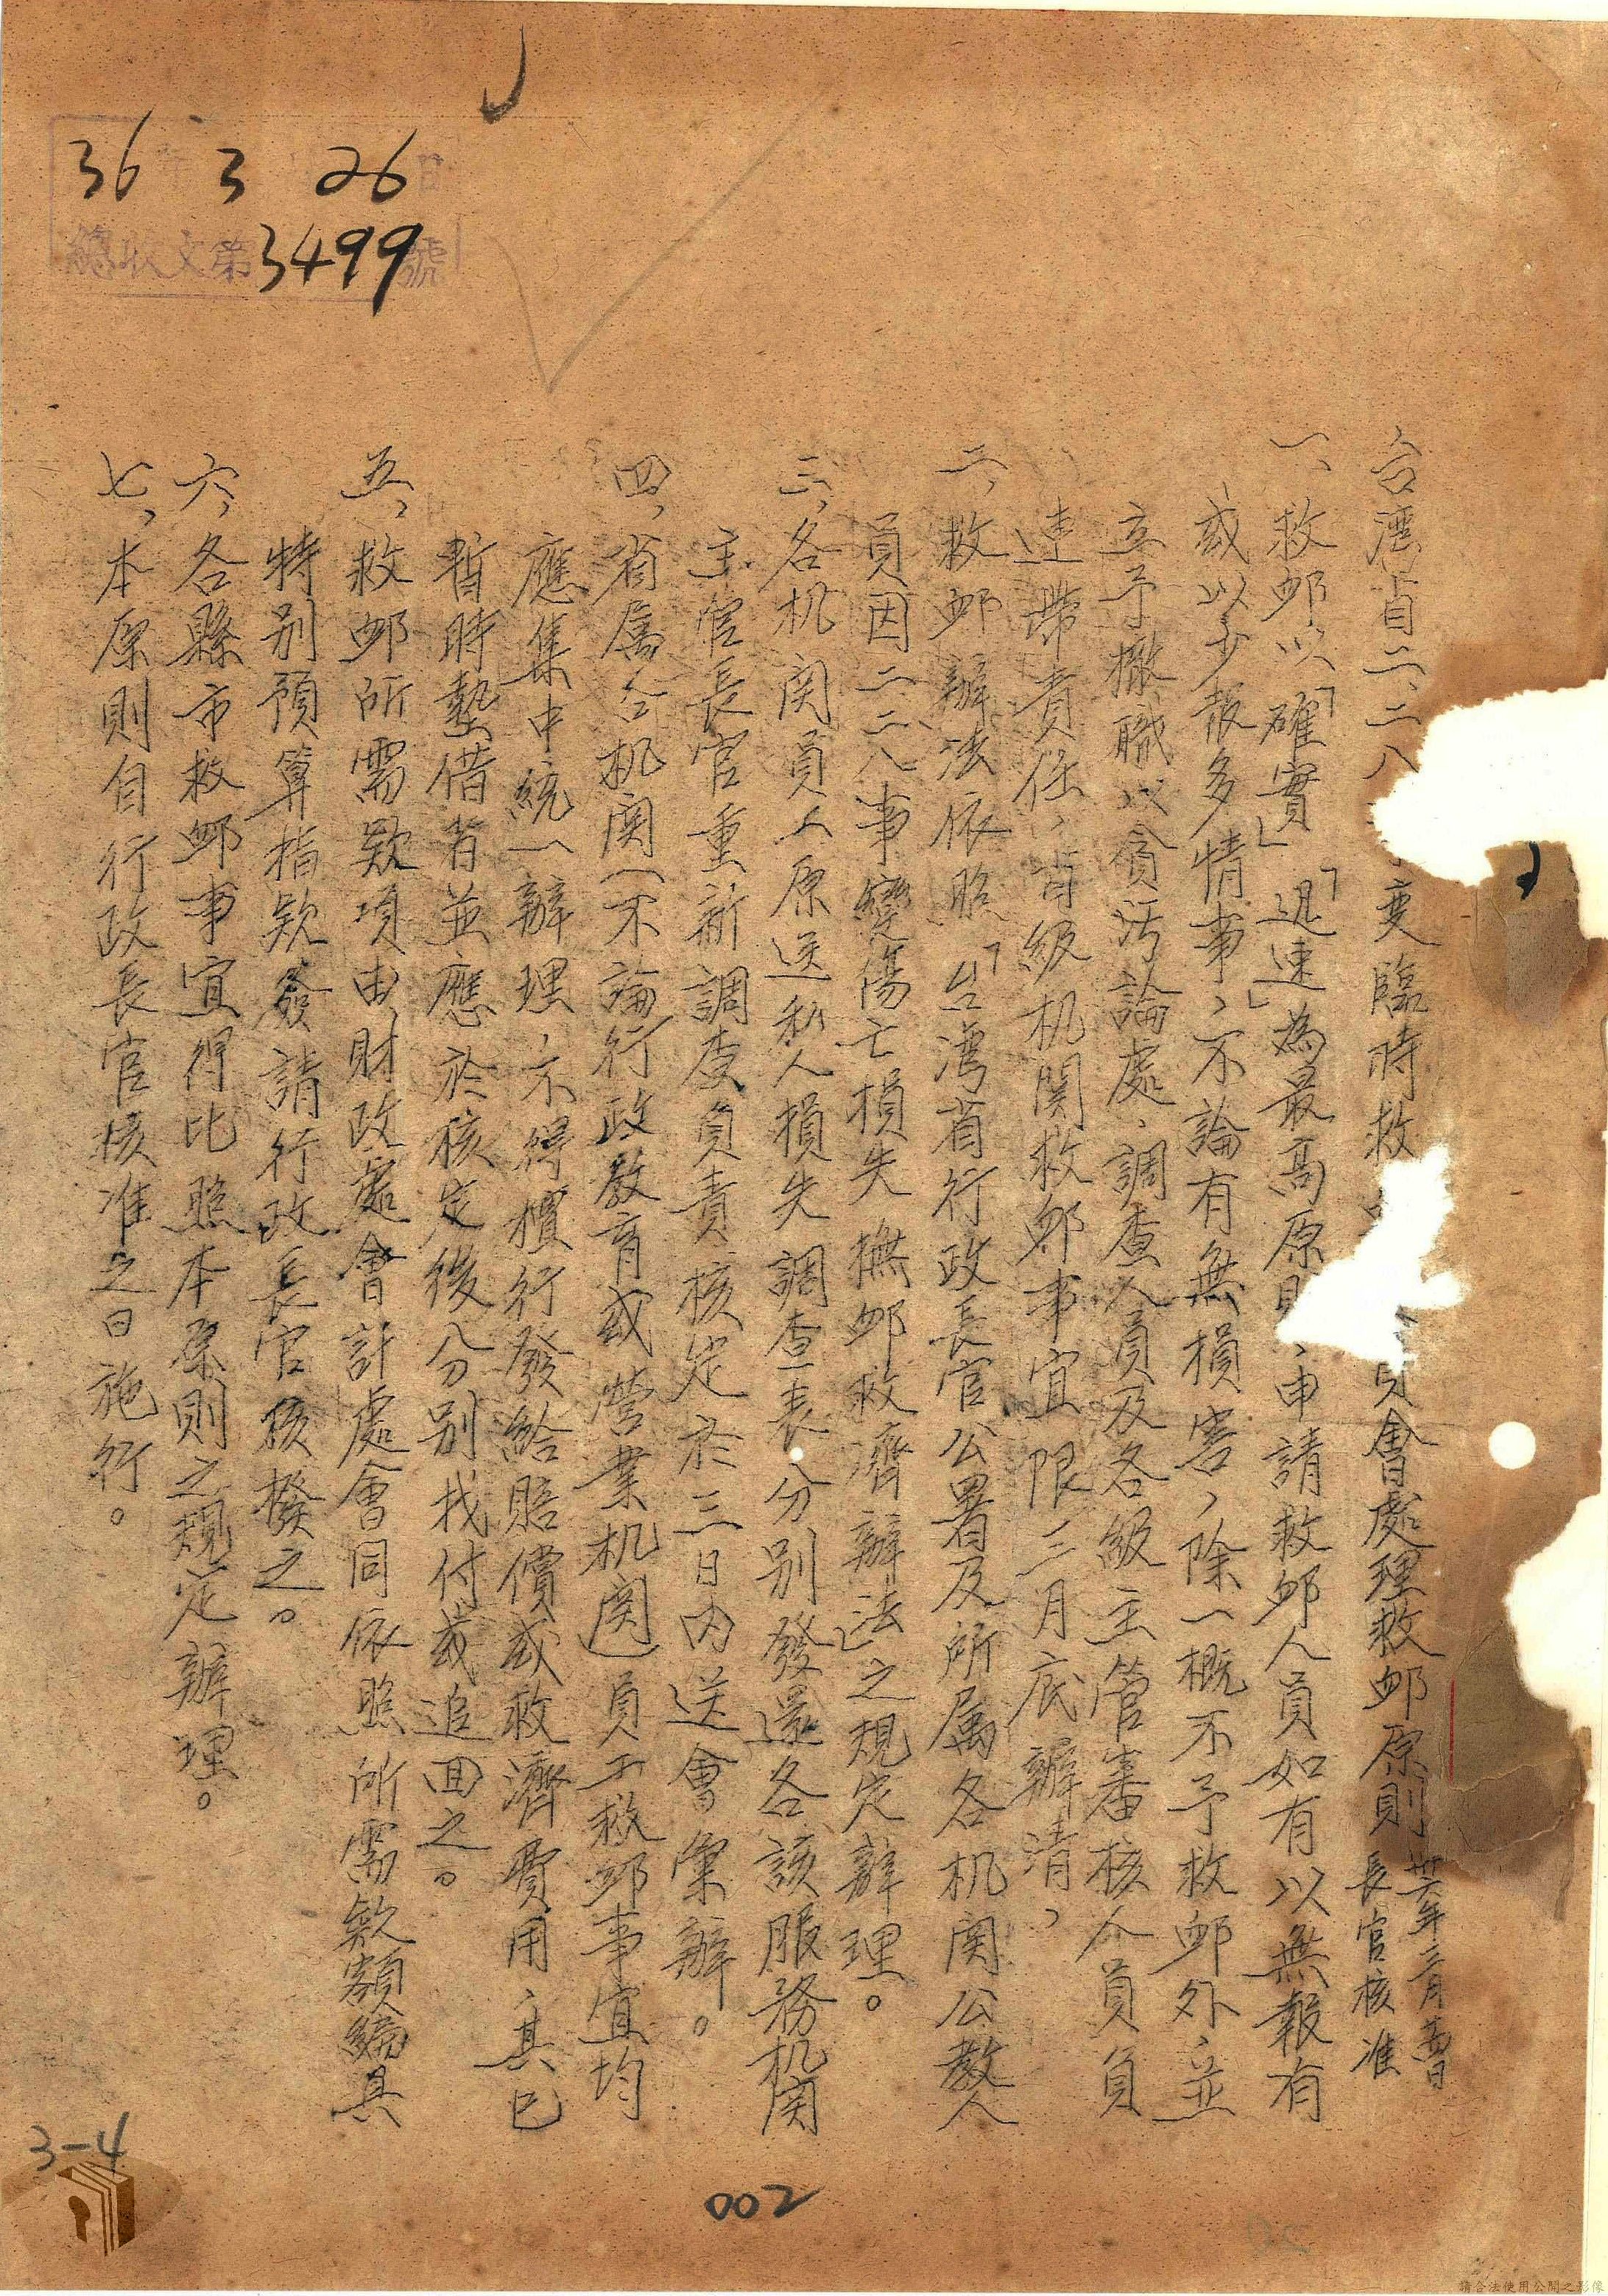 36 3 26
總收文第3499號
台灣省二二八變臨時救會處理救卹原則
卅六年三月
長官核准
一、救卹以「確實」「迅速」為最高原則、申請救卹人員如有以無報有
或以少報多情事、不論有無損害、除一概不予救卹外、並
立予撤職以貪污論處、調查人員及各級主管審核人員負
連帶責任、皆級机関救卹事宜限三月底辦清、
二、救卹辦法依照「台湾省行政長官公署及所属各机関公教人
員因二二八事變傷亡損失撫卹救濟辦法」之規定辦理。
三、各机関員工原送私人損失調查表、分別發還各該服務机関
主官長官重新調查負責核定於三日内送會彙辦。
四、省属各机関（不論行政教育或營業机関）員工救卹事宜均
應集中統一辦理、不得擅行發給賠償或救濟費用、其已
暫時墊借者並應於核定後分別找付或追回之。
五、救卹所需欵項由財政處會計處會同依照所需欵額編具
特別預算指欵發請行政長官核撥之。
六、各縣市救卹事宜得比照本原則之規定辦理。
七、本原則自行政長官核准之日施行。
3-4
002
請合法使用公開之影像